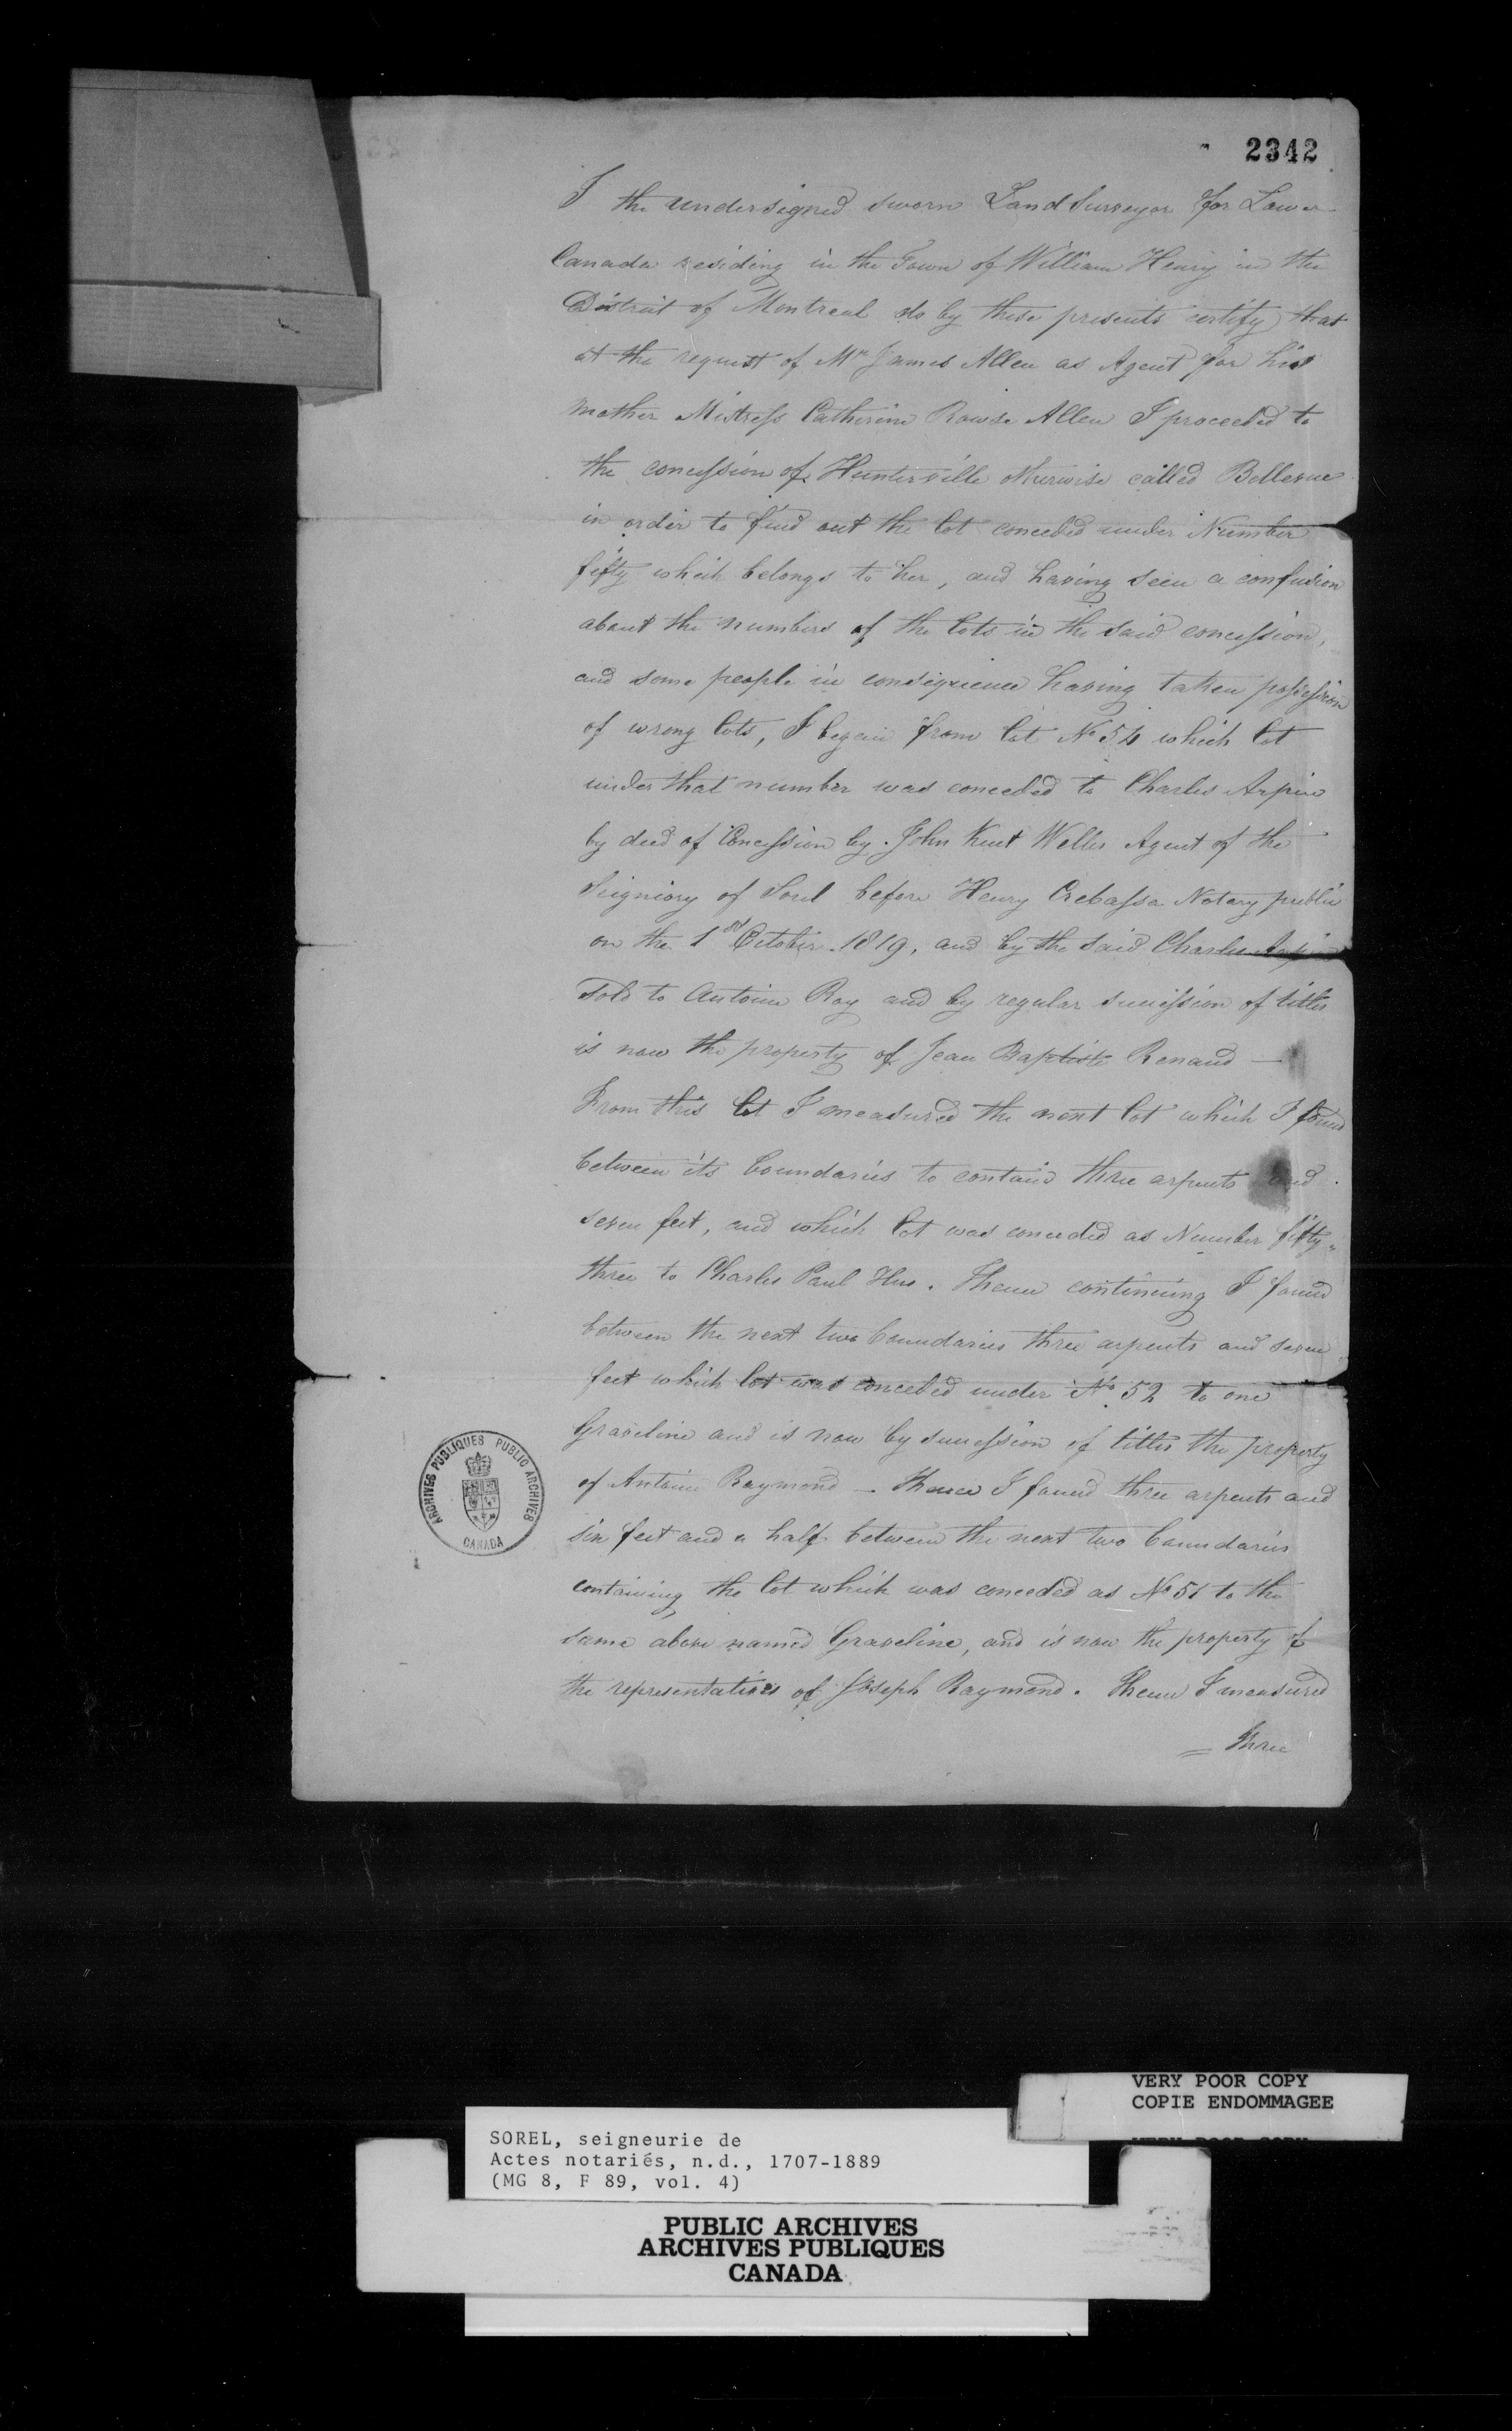 2342
I the undersigned sworn Land Surveyor for Lower
Canada residing in the Town of William Henry in the
District of Montreal do by these presents certify that
at the request of Mr James Allen as Agent for his
mother Mistress Catherine Rowse Allen I proceeded to
the concession of Hunterville otherwise called Bellevue
in order to find out the lot conceded under Number
fifty which belongs to her, and having seen a confusion
about the numbers of the lots in the said concession,
and some people in consequence having taken possession
of wrong lots, I began from lot No 54 which lot
under that number was conceded to Charles Arpin
by deed of Concession by John Kent Welles Agent of the
Seigniory of Sorel before Henry Crebassa Notary public
on the 1st October 1819, and by the said Charles Arpin
sold to Antoine Roy and by regular succession of titles
is now the property of Jean Baptiste Renaud —
From this lot I measured the next lot which I found
between its boundaries to contain three arpents and
seven feet, and which lot was conceded as Number fifty„
three to Charles Paul Hus. Thence continuing I found
between the next two boundaries three arpents and seven
feet which lot was conceded under No. 52 to one
Graveline and is now by succession of titles the property
of Antoine Raymond — Thence I found three arpents and
six feet and a half between the next two boundaries
containing the lot which was conceded as No 51 to the
same above named Graveline, and is now the property of
the representatives of Joseph Raymond. Thence I measured
= three
ARCHIVES PUBLIQUES PUBLIC ARCHIVES
CANADA
VERY POOR COPY
COPIE ENDOMMAGEE
VERY POOR COPY
SOREL, seigneurie de
Actes notariés, n.d., 1707-1889
(MG 8, F 89, vol. 4)
PUBLIC ARCHIVES
ARCHIVES PUBLIQUES
CANADA